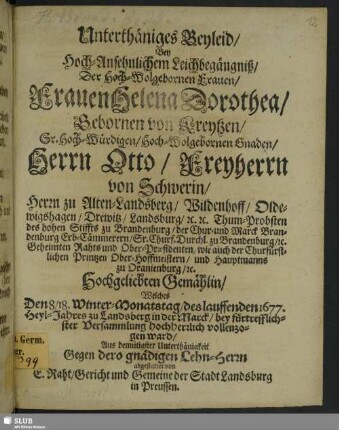 Unterthäniges Beyleid/
Bey
Hoch-Ansehnlichem Leichbegängniß/
Der Hoch-Wolgebornen Frauen/
Frauen Helena Dorothea/
Gebornen von Kreytzen/
Sr. Hoch-Würdigen/ Hoch-Wolgebornen Gnaden/
Herrn Otto/ Freyherrn
von Schwerin/
Herrn zu Alten-Landsberg/ Wildenhoff/ Olde-
wigshagen/ Drewitz/ Landsburg/ ꝛc. ꝛc. Thum-Probsten
des hohen Stiffts zu Brandenburg/ der Chur-und Marck Bran-
denburg Erb-Cämmerern/ Sr. Churf. Durchl. zu Brandenburg/ꝛc.
Geheimten Rahts und Ober-Præsidenten, wie auch der Churfürst-
lichen Printzen Ober-Hoffmeistern/ und Hauptmanns
zu Oranienburg/ ꝛc.
Hochgeliebten Gemählin/
Welches
Den 8/18. Winter-Monatstag/ des lauffenden 1677.
Heyl-Jahres zu Landsberg in der Marck/ bey fürtrefflich-
ster Versammlung hochherrlich vollenzo-
gen ward/
Aus demütigster Unterthänigkeit
Gegen dero gnädigen Lehn-Herrn
abgestattet von
E. Raht/ Gericht und Gemeine der Stadt Landsburg
in Preussen.
Germ.
SLUB